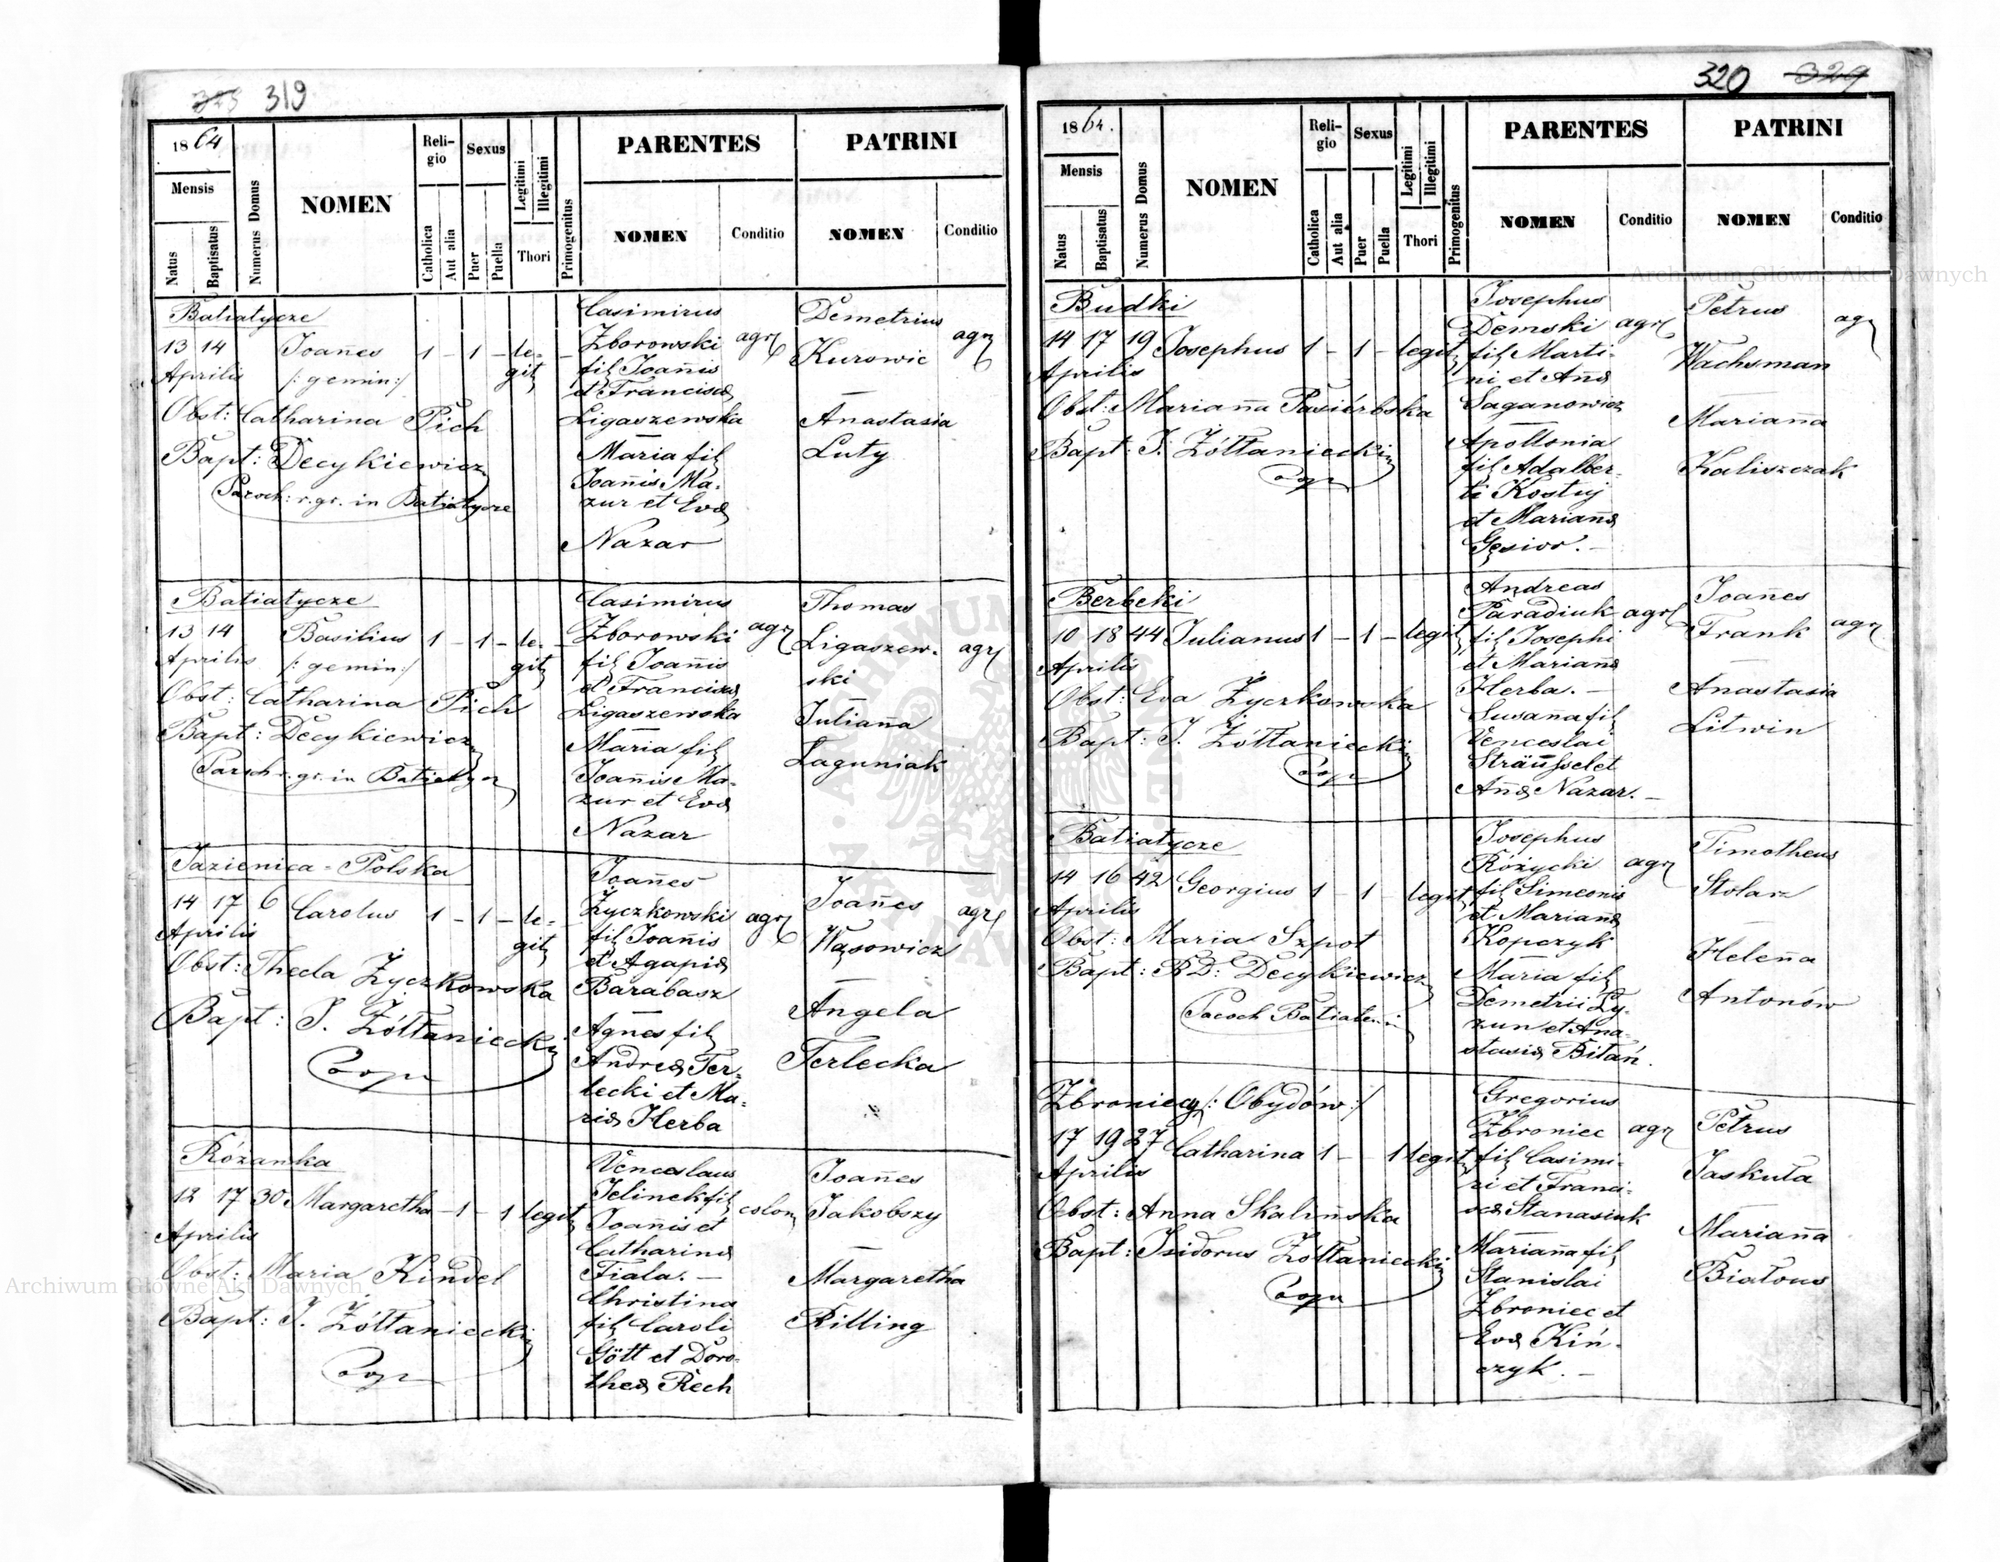 319
1864
Mensis
Natus
Baptisatus
Numerus Domus
NOMEN
Religio
Catholica
Aut alia
Sexus
Puer
Puella
Legitimi
Illegitimi
Thori
Primogenitus
PARENTES
NOMEN
Conditio
PATRINI
NOMEN
Conditio
Batiatycze
13 14
Aprilis
Joañes
/: gemin :/
1 – 1 – le-
git
Obst: Catharina Pich
Bapt: Decykiewicz
Paroch: r. gr. in Batiatycze
Casimirus
Zborowski agr
fil Joañis
et Francisca
Ligaszewska
Maria fil
Joañis Ma-
zur et Eva
Nazar
Demetrius
Kurowic agr
Anastasia
Luty
Batiatycze
13 14
Aprilis
Basilius
/: gemin :/
1 – 1 – le-
git
Obst: Catharina Pich
Bapt: Decykiewicz
Paroch r. gr. in
Casimirus
Zborowski agr
fil Joañis
et Francisca
Ligaszewska
Maria fil
Joañis Ma-
zur et Eva
Nazar
Thomas
Ligaszew- agr
ski
Juliaña
Laguniak
Jazienica-Polska
14 17 6
Aprilis
Carolus
1 – 1 – le-
git
Obst: Thecla Zyczkowska
Bapt: J. Żółtaniecki
Coop
Joañes
Życzkowski agr
fil Joañis
et Agapia
Barabasz
Agnes fil
Andrea Ter-
lecki et Ma-
ria Herba
Joañes agr
Wąsowicz
Angela
Terlecka
Rózanka
12 17 30
Aprilis
Margaretha – 1 – 1 legit
Obst: Maria Kindel
Bapt: J. Żółtaniecki
Coop
Venceslaus
Jelinek fil colon
Joañis et
Catharina
Fiala. –
Christina
fil Caroli
Gött et Doro-
thea Rech
Joañes
Jakobszy
Margaretha
Rilling
320 329
1864.
Mensis
Natus
Baptisatus
Numerus Domus
NOMEN
Religio
Catholica
Aut alia
Sexus
Puer
Puella
Legitimi
Illegitimi
Thori
Primogenitus
PARENTES
NOMEN
Conditio
PATRINI
NOMEN
Conditio
Budki
14 17 19 Josephus 1 – 1 – legit
Aprilis
Obst: Mariaña Pasiérbska
Bapt: J. Żółtaniecki
Coop
Josephus
Demski agr
fil Marti-
ni et Aña
Saganowicz
Apollonia
fil Adalber-
ti Kostuj
et Mariaña
Gęsior. –
Petrus agr
Wachsman
Mariaña
Kaliszczak
Berbeki
10 18 44 Julianus 1 – 1 – legit
Aprilis
Obst: Eva Życzkowska
Bapt: J. Żółtaniecki
Coop
Andreas
Paradiuk agr
fil Josephi
et Mariaña
Herba. –
Susaña fil
Venceslai
Sträussel et
Aña Nazar. –
Joañes
Frank agr
Anastasia
Litwin
Batiatycze
14 16 42 Georgius 1 – 1 – legit
Aprilis
Obst: Maria Szpot
Bapt: RD: Decykiewicz
Paroch
Josephus
Różycki agr
fil Simeonis
et Mariaña
Kopczyk
Maria fil
Demetrii Ły-
zun et Ana-
stasia Bitań.
Timotheus
Stolarz
Heleña
Antonów
Zbroniecy /: Obydów :/
17 19 27 Catharina 1 – 1 legit
Aprilis
Obst: Anna Skalińska
Bapt: Isidorus Żołtaniecki
Coop
Gregorius
Zbroniec agr
fil Casimi-
ri et Franci-
sca Stanasiuk
Mariaña fil
Stanislai
Zbroniec et
Eva Kiń-
czyk. –
Petrus
Jaskuła
Mariaña
Białous
Archiwum Główne Akt Dawnych
Archiwum Główne Akt Dawnych
ARCHIWUM GŁÓWNE AKT DAWNYCH